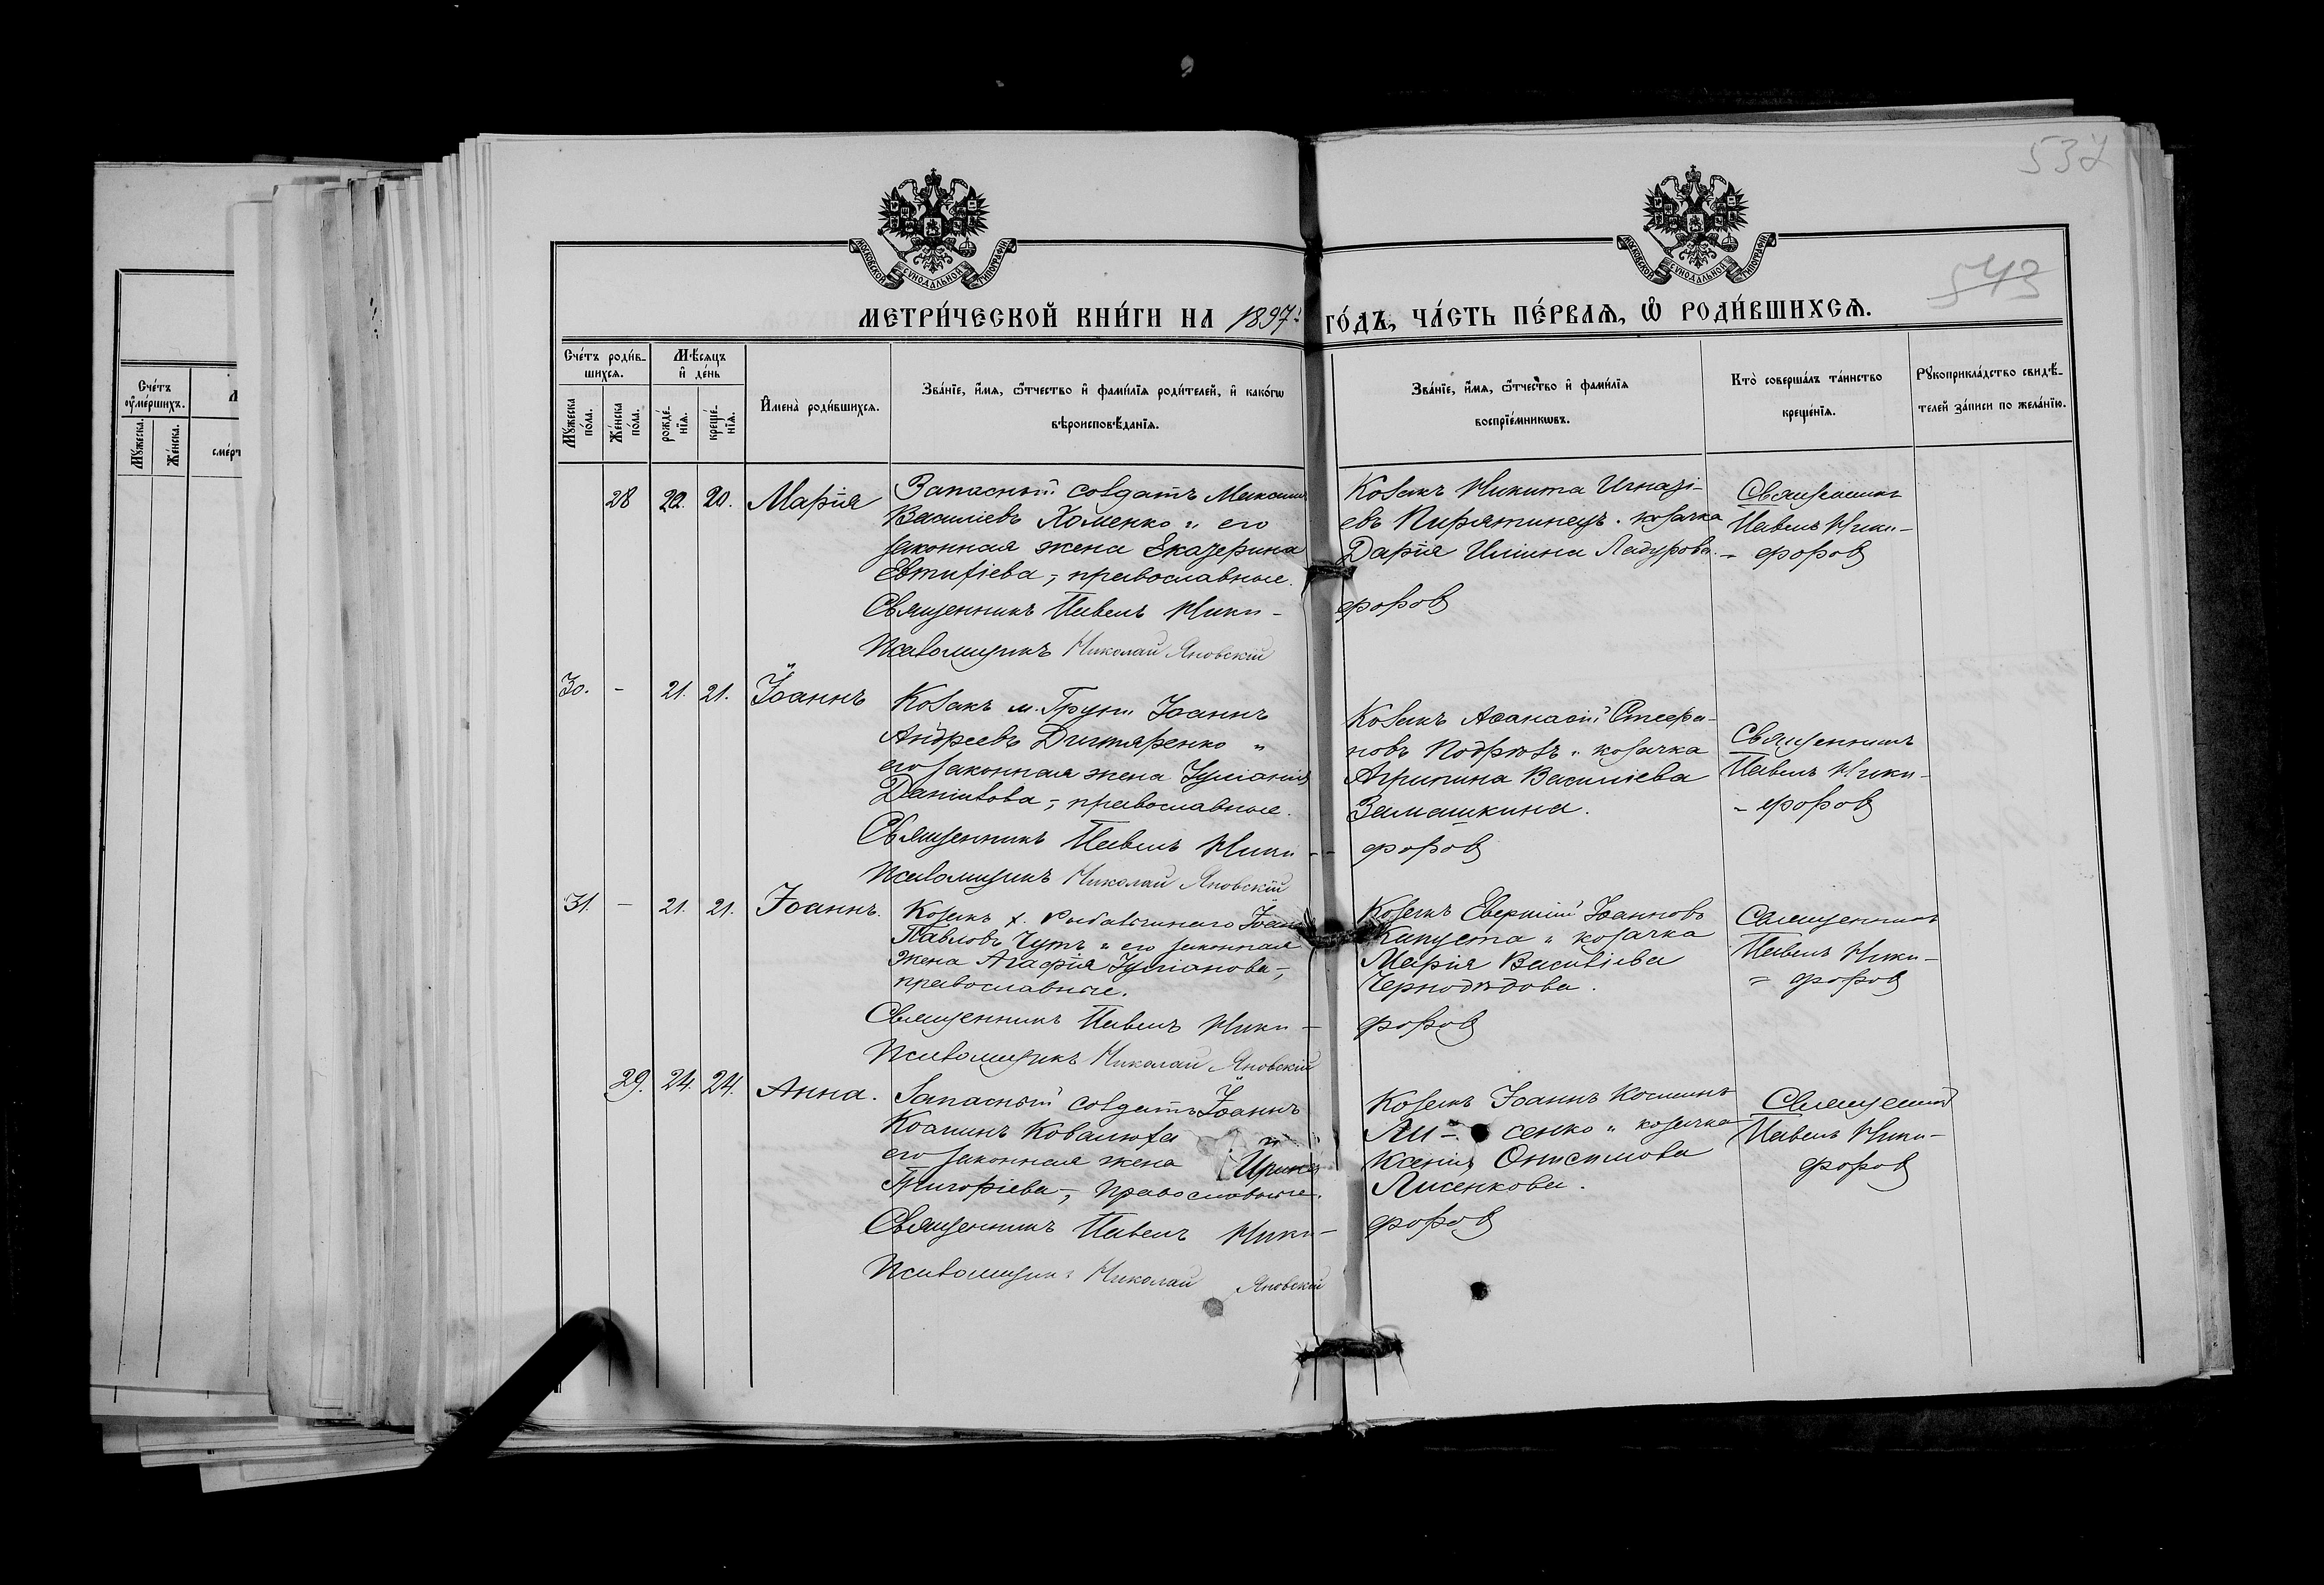 532
543
МОСКОВСКОЙ СУНОДАЛЬНОЙ ТИПОГРАФІИ
МОСКОВСКОЙ СУНОДАЛЬНОЙ ТИПОГРАФІИ
МЕТРИ́ЧЕСКОЙ КНИ́ГИ НА 1897: ГО́ДЪ, ЧА́СТЬ ПЕ́РВАѦ, Ѽ РОДИ́ВШИХСѦ.
Сче́тъ ᲂу҆ме́ршихъ.
Мꙋ́жеска.
Же́нска.
Сче́тъ роди́в-
шихсѧ.
Мꙋ́жеска по́ла.
Же́нска по́ла.
Мѣ́сѧцъ
и҆ де́нь
рожде́-
нїѧ.
креще́-
нїѧ.
И҆мена̀ роди́вшихсѧ.
Зва́нїе, и҆́мѧ, ѻ҆́тчество и҆ фами́лїѧ роди́телей, и҆ како́гѡ
вѣроисповѣ́данїѧ.
Зва́нїе, и҆́мѧ, ѻ҆́тчество и҆ фами́лїѧ
воспрїе́мникѡвъ.
Кто̀ соверша́лъ та́инство
креще́нїѧ.
Рꙋкоприкла́дство свидѣ́-
телей за́писи по жела́нїю.
28 20. Марія
Запасный солдатъ Максимъ
Василіевъ Хоменко и его
законная жена Екатерина
Евтифіева, православные.
Священникъ Павелъ Ники-
форов
Псаломщикъ Николай Яновскій
Козакъ Никита Игнаті-
евъ Пирятинецъ и козачка
Дарія Иліина Ладурова.
Священникъ
Павелъ Ники-
форов
30. - 21. 21. Іоаннъ
Козакъ м. Груни Іоаннъ
Андреевъ Дигтяренко и
его законная жена Іуліанія
Даніилова, православные.
Священникъ Павелъ Ники-
форов
Псаломщикъ Николай Яновскій
Козакъ Аѳанасій Стефа-
новъ и козачка
Агрипина Василіева
Замашкина.
Священникъ
Павелъ Ники-
форов
31. - 21. 21. Іоаннъ.
Козакъ х. Іоаннъ
Павловъ Чутъ и его законная
жена Агафія Іуліанова,
православные.
Священникъ Павелъ Ники-
форов
Псаломщикъ Николай Яновскій
Козакъ Іоанновъ
Капуста и козачка
Марія Василіева
Чернодѣдова.
Священникъ
Павелъ Ники-
форов
29. 24. 24. Анна.
Запасный солдатъ Іоаннъ
его законная жена Ирина
Григоріева, православные.
Священникъ Павелъ Ники-
форов
Псаломщикъ Николай Яновскій
Козакъ Іоаннъ Косминъ
Ли- сенко и козачка
Ксенія Онисимова
Лисенкова.
Священникъ
Павелъ Ники-
форов